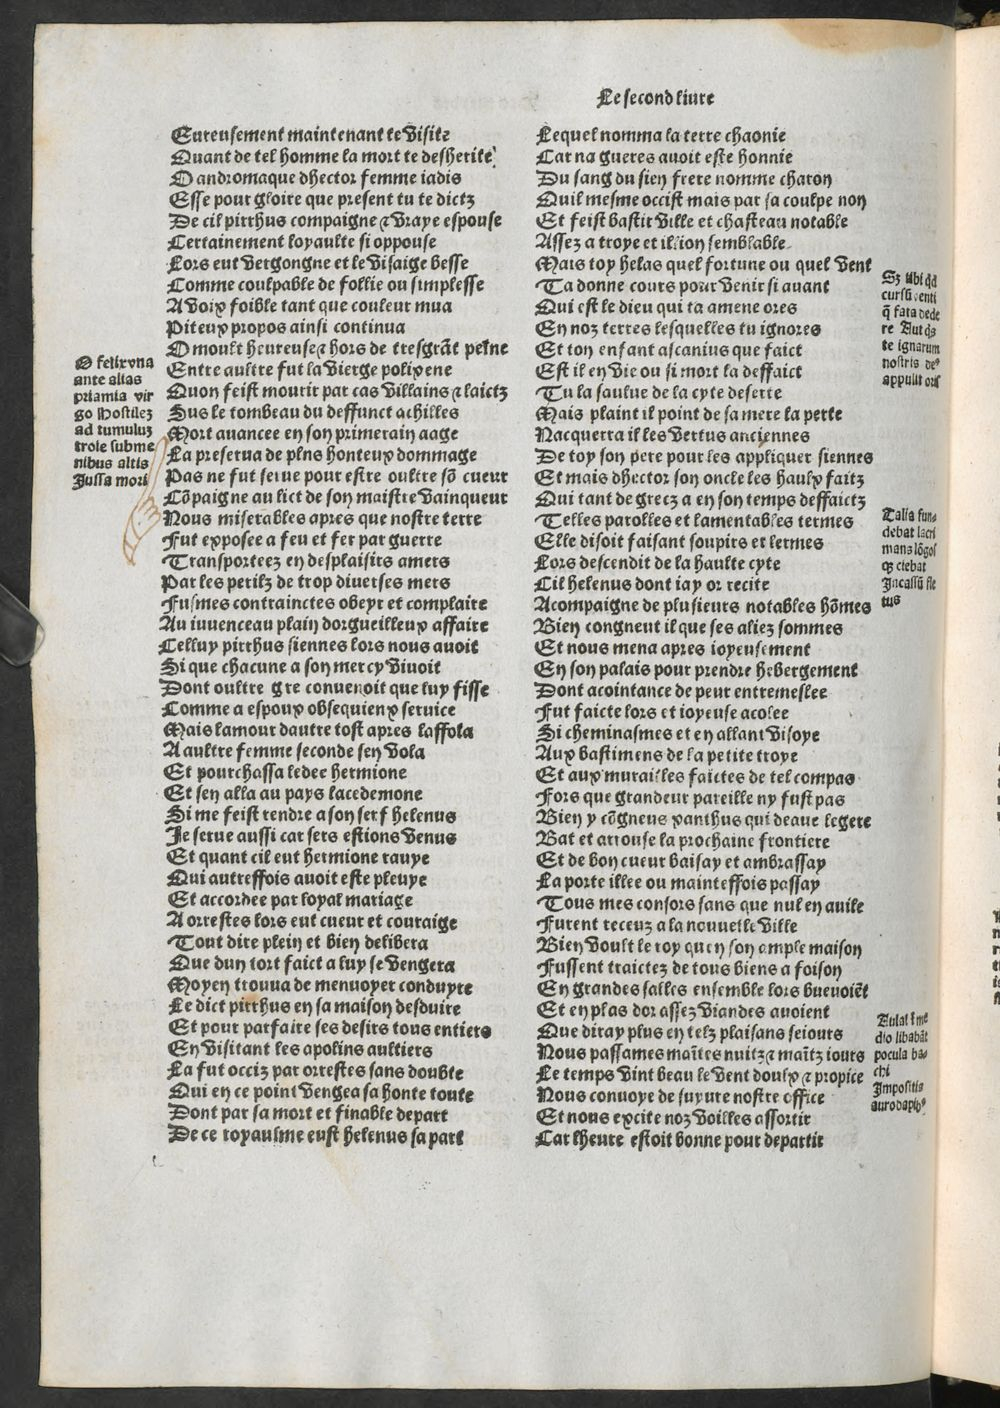 Le second liure
Eureusement maintenant te visite
Quant de tel homme la mort te desherite
O andromaque dhector femme iadis
Esse pour gloire que present tu te dictz
De cil pirrhus compaigne ⁊ vraye espouse
Certainement loyaulte si oppouse
Lors eut vergongne et le visaige besse
Comme coulpable de follie ou simplesse
A voix foible tant que couleur mua
Piteux propos ainsi continua
O moult heureuse ⁊ hors de tresgrāt peine
Entre aultre fut la vierge polixene
Quon feist mourir par cas villains ⁊ laictz
Sus le tombeau du deffunct achilles
Mort auancee en son primerain aage
La preserua de plus honteux dommage
Pas ne fut serue pour estre oultre sō cueur
Cōpaigne au lict de son maistre vainqueur
Nous miserables apres que nostre terre
Fut exposee a feu et fer par guerre
Transporteez en desplaisirs amers
Par les perilz de trop diuerses mers
Fusmes contrainctes obeyr et complaire
Au iuuenceau plain dorgueilleux affaire
Celluy pirrhus siennes lors nous auoit
Si que chacune a son mercy viuoit
Dont oultre gre conuenoit que luy fisse
Comme a espoux obsequieux seruice
Mais lamour dautre tost apres laffola
A aultre femme seconde sen vola
Et pourchassa ledee hermione
Et sen alla au pays lacedemone
Si me feist rendre a son serf helenus
Je serue aussi car sers estions venus
Et quant cil eut hermione rauye
Qui autreffois auoit este pleuye
Et accordee par loyal mariage
A orrestes lors eut cueur et couraige
Tout dire plein et bien delibera
Que dun tort faict a luy se vengera
Moyen trouua de menuoyer conduyre
Le dict pirrhus en sa maison desduire
Et pour parfaire ses desirs tous entiers
En visitant les apolins aultiers
La fut occiz par orrestes sans doubte
Qui en ce point vengea sa honte toute
Dont par sa mort et finable depart
De ce royaulme eust helenus sa part
O felix vna
ante alias
priamia vir
go Hostilez
ad tumuluz
troie subme
nibus altis
Jussa mori
Lequel nomma la terre chaonie
Car na gueres auoit este honnie
Du sang du sien frere nomme chaon
Quil mesme occist mais par sa coulpe non
Et feist bastir ville et chasteau notable
Assez a troye et ilion semblable
Mais toy helas quel fortune ou quel vent
Ta donne cours pour venir si auant
Qui est le dieu qui ta amene ores
En noz terres lesquelles tu ignores
Et ton enfant ascanius que faict
Est il en vie ou si mort la deffaict
Tu la saulue de la cyte deserte
Mais plaint il point de sa mere la perte
Nacquerra il les vertus anciennes
De toy son pere pour les appliquer siennes
Et mais dhector son oncle les haulx faitz
Qui tant de grecz a en son temps deffaictz
Telles parolles et lamentables termes
Elle disoit faisant soupirs et lermes
Lors descendit de la haulte cyte
Cil helenus dont iay or recite
Acompaigne de plusieurs notables hōmes
Bien congneut il que ses aliez sommes
Et nous mena apres ioyeusement
En son palais pour prendre hebergement
Dont acointance de peur entremeslee
Fut faicte lors et ioyeuse acolee
Si cheminasmes et en allant visoye
Aux bastimens de la petite troye
Et aux murailles faictes de tel compas
Fors que grandeur pareille ny fust pas
Bien y cōgneus xanthus qui deaue legere
Bat et arrouse la prochaine frontiere
Et de bon cueur baisay et ambrassay
La porte illee ou mainteffois passay
Tous mes consors sans que nul en auile
Furent receuz a la nouuelle ville
Bien voult le roy quen son ample maison
Fussent traictez de tous biens a foison
En grandes salles ensemble lors buuoiēt
Et en plas dor assez viandes auoient
Que diray plus en telz plaisans seiours
Nous passames maītes nuitz ⁊ maītz iours
Le temps vint beau le vent doulx ⁊ propice
Nous conuoye de suyure nostre office
Et nous excite noz voilles assortir
Car lheure estoit bonne pour departir
Sz tibi qd
cursū venti
q̄ fata dede
re Aut qs
te ignarum
nostris de⁹
appulit oris
Talia fun-
debat lacri
mans lōgos
qz ciebat
Incassū fle
tus
Aulai ī me
dio libabāt
pocula ba-
chi
Impositis
auro dapib⁹